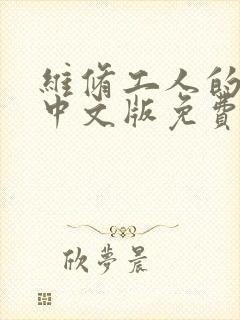 維脩工人的
中文版免費
欣夢晨